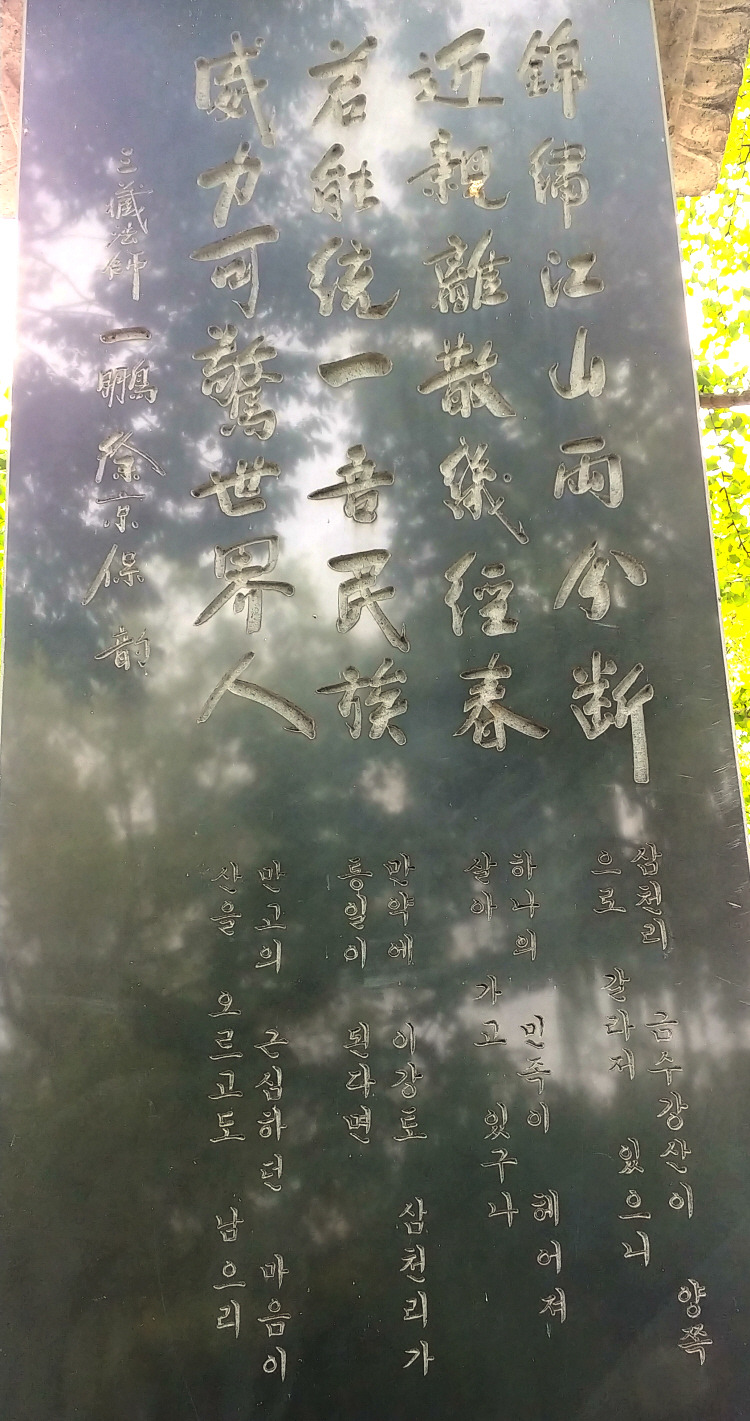 錦繡江山兩分斷
近親離散幾經春
若能統一音民族
威力可驚世界人
三藏法師 一鵬 徐京保 韵
삼천리 금수강산이 양쪽
으로 갈라저 있으니
하나의 민족이 헤어져
살아 가고 있구나
만약에 이강토 삼천리가
통일이 된다면
만고의 근심하던 마음이
산을 오르고도 남으리